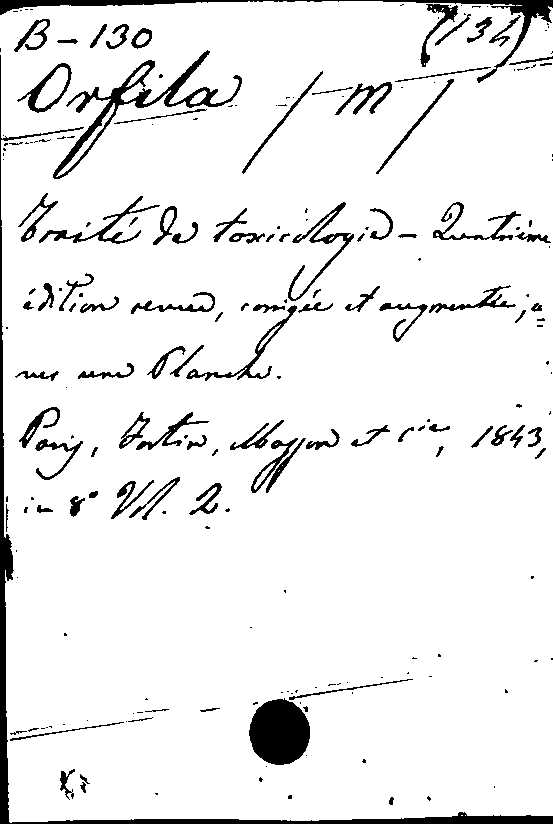 B-130 (134)
Orfila (m)
Traité de toxicologie - Quatrième
édition revue, corrigée et augmentée, a=
vec une Planche.
Paris, Fortin, Masson et Cie, 1843,
in 8° Vol. 2.